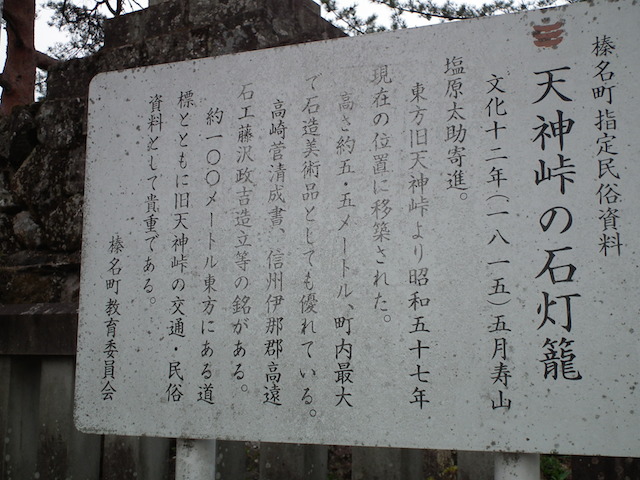 榛名町指定民俗資料
天神峠の石灯籠
文化十二年(一八一五)五月寿山
塩原太助寄進。
東方旧天神峠より昭和五十七年
現在の位置に移築された。
高さ約五・五メートル、町内最大
で石造美術品としても優れている。
高崎菅清成書、信州伊那郡高遠
石工藤沢政吉造立等の銘がある。
約一〇〇メートル東方にある道
標とともに旧天神峠の交通・民俗
資料として貴重である。
榛名町教育委員会